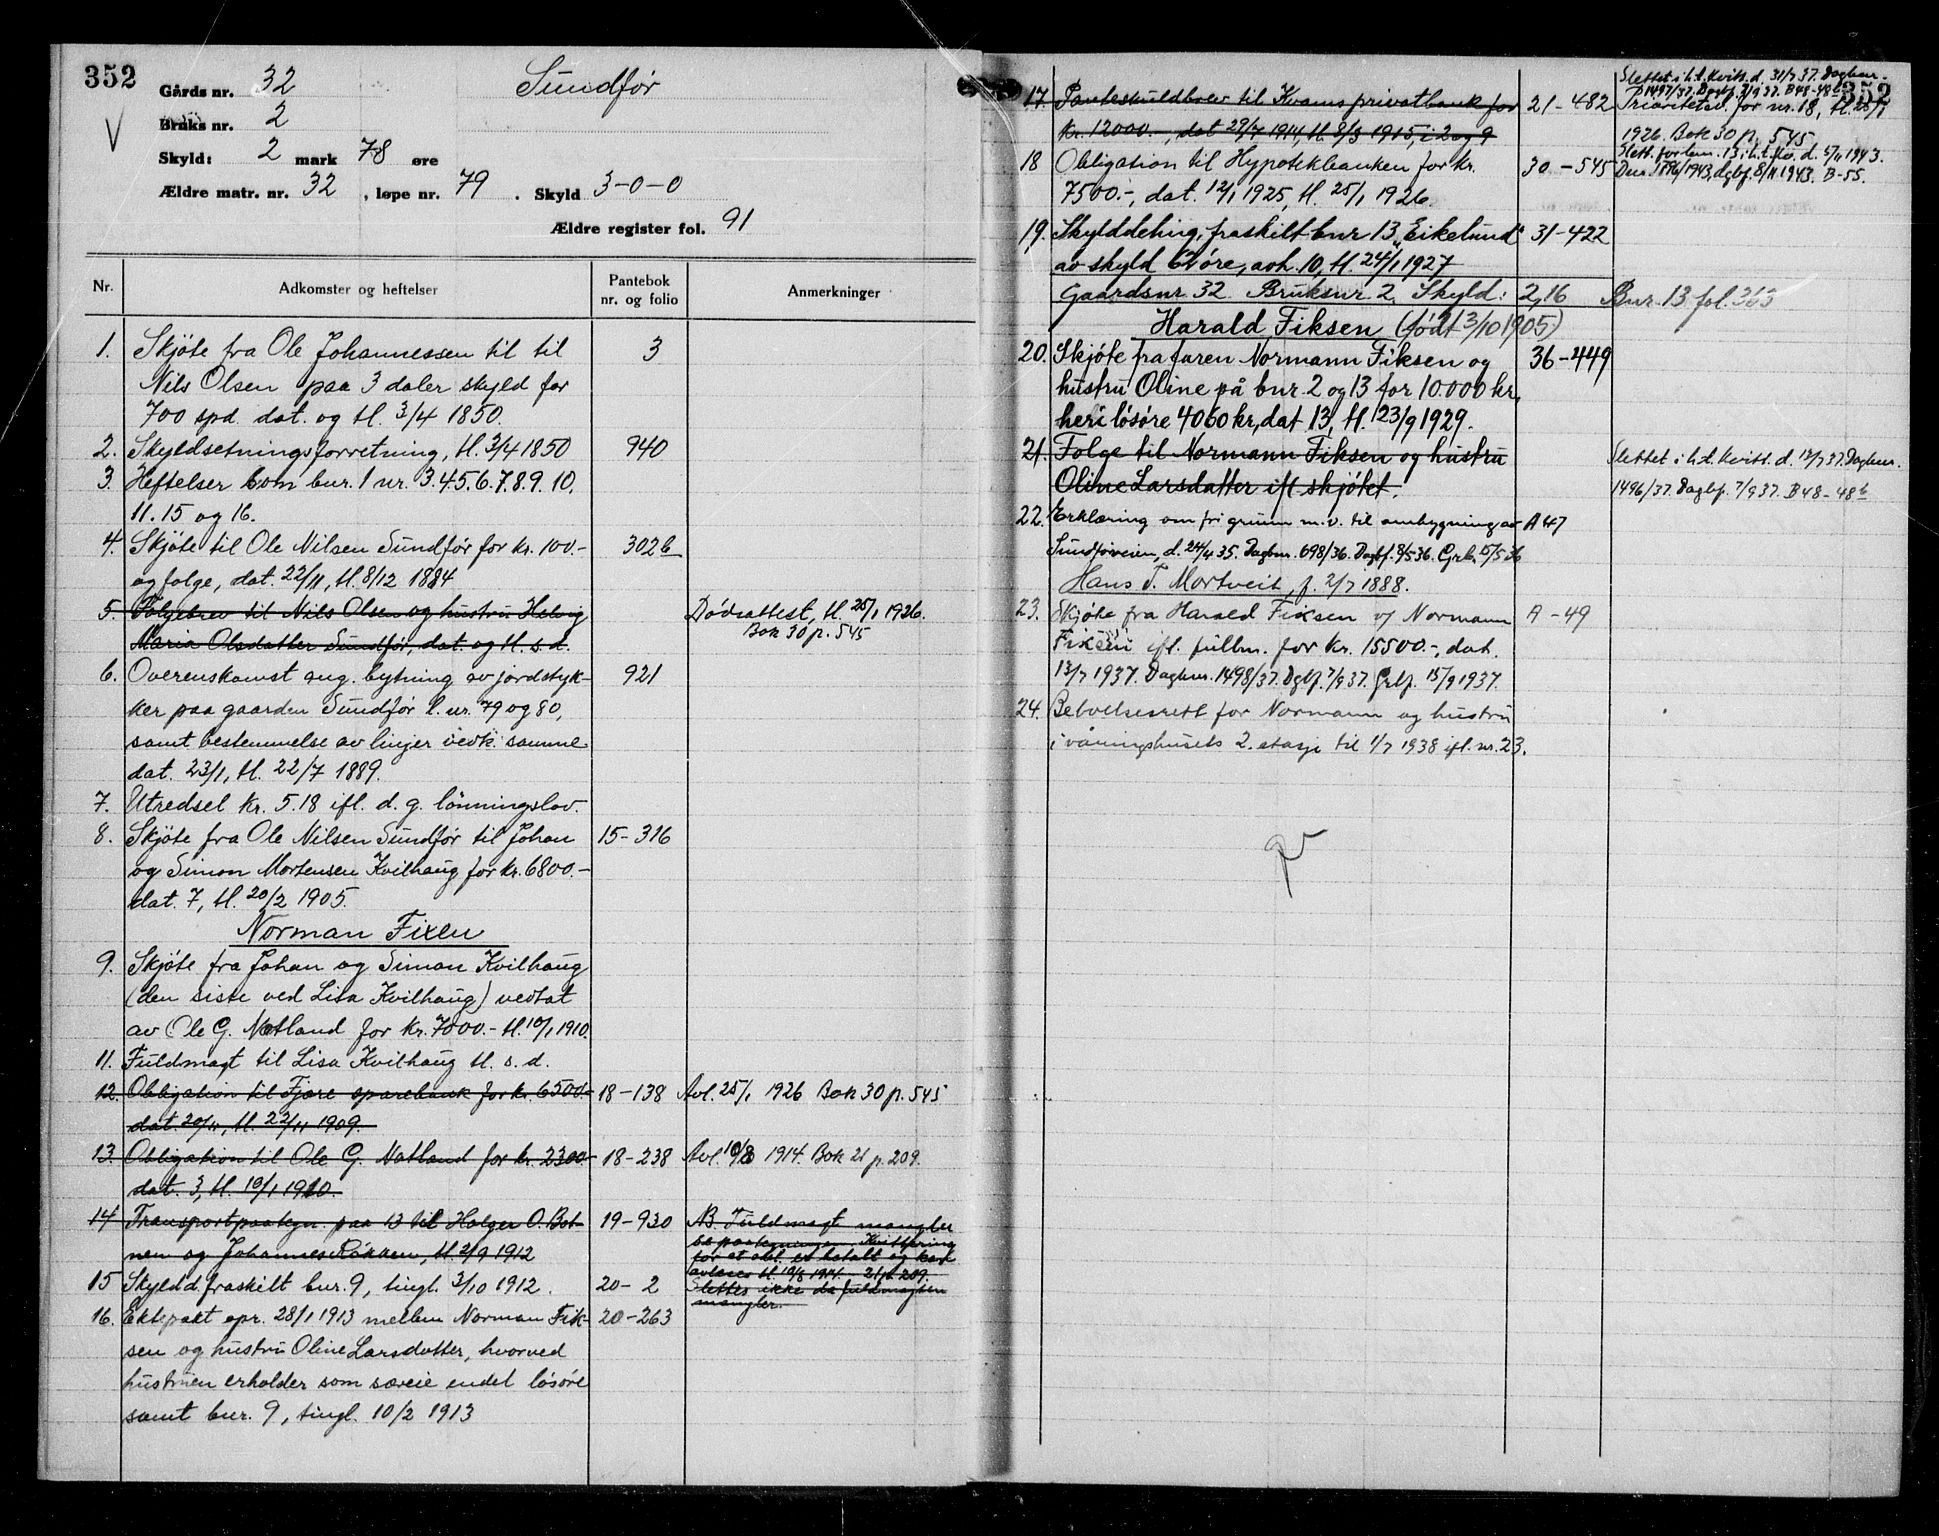 352
Gårds nr. 32 Sundfør
Bruks nr. 2
Skyld: 2 mark 78 øre
Ældre matr. nr. 32, løpe nr. 79. Skyld 3-0-0
Ældre register fol. 91
Nr. Adkomster og heftelser Pantebok nr. og folio Anmerkninger
1. Skjøte fra Ole Johannessen til til 3
Nils Olsen paa 3 daler skyld for
700 spd. dat. og tl. 3/4 1850.
2. Skyldsetningsforretning, tl. 3/4 1850 940
3. Heftelser som bnr. 1 nr. 3.4.5.6.7.8.9.10.
11. 15 og 16.
4. Skjøte til Ole Nilsen Sundfør for kr. 100.- 302b
og følge, dat. 22/11, tl. 8/12 1884
5. Følgebrev til Nils Olsen og hustru Helvig Dødsattest, tl. 25/1 1926.
Maria Olsdatter Sundfør, dat. og tl. s.d. Bok 30 p. 545
6. Overenskomst ang. bytning av jordstyk- 921
ker paa gaarden Sundfør l. nr. 79 og 80,
samt bestemmelse av linjer vedk. samme
dat. 23/1, tl. 22/7 1889.
7. Utredsel kr. 5.18 ifl. d. g. lønningslov.
8. Skjøte fra Ole Nilsen Sundfør til Johan 15-316
og Simon Mortensen Kvilhaug for kr. 6800.-
dat. 7, tl. 20/2 1905.
Norman Fixen
9. Skjøte fra Johan og Simon Kvilhaug
(den siste ved Lisa Kvilhaug) vedtat
av Ole G. Natland for kr. 7000.- tl. 10/1 1910.
11. Fuldmagt til Lisa Kvilhaug tl. s. d.
12. Obligation til Fjære sparebank for kr. 6500.- 18-138 Avl. 25/1 1926 Bok 30 p. 545
dat. 20/11, tl. 22/11 1909.
13. Obligation til Ole G. Natland for kr. 2300.- 18-238 Avl. 10/8 1914. Bok 21 p. 209.
dat. 3, tl. 10/1 1910.
14 Transportpaategn. paa 13 til Holger O. Bot- 19-930 NB. Fuldmagt mangler
nen og Johannes Røkken, tl. 2/9 1912 se paategningen. Kvittering
for at obl. er betalt og kan
avleses tl. 10/8 1914. 21 p. 209.
15 Skyldd. fraskilt bnr. 9, tingl. 3/10 1912. 20-2 Slettes ikke da fuldmagten
mangler.
16. Ektepakt opr. 28/1 1913 mellem Norman Fik- 20-263
sen og hustru Oline Larsdatter, hvorved
hustruen erholder som særeie endel løsøre
samt bnr. 9, tingl. 10/2 1913
352
Slettet i h.t. kvitt. d. 31/7 37. Dagbnr.
1497/37. Dagbf. 7/9 37. B48-48b
17. Panteskuldbrev til Kvams privatbank for 21-482 Prioritetsd. for nr. 18, tl. 25/1
kr. 12000.-, dat 29/7 1914, tl. 8/3 1915, i 2 og 9 1926. Bok 30 p. 545
18 Obligation til Hypotekbanken for kr. 30-545 Slett. for bnr. 13 i h.t. kv. d. 5/11 1943.
7500.-, dat. 12/1 1925, tl. 25/1 1926. Dnr. 1896/1943, dgbf. 8/11 1943. B-55.
19. Skylddeling, fraskilt bnr 13 "Eikelund" 31-422
av skyld 62 øre, avh. 10, tl. 24/1 1927
Gaardsnr 32 Bruksnr 2 Skyld: 2,16 Bnr. 13 fol. 363
Harald Fiksen (født 3/10 1905)
20. Skjøte fra faren Normann Fiksen og 36-449
hustru Oline på bnr. 2 og 13 for 10.000 kr,
heri løsøre 4060 kr, dat 13, tl. 23/9 1929.
21. Følge til Normann Fiksen og hustru Slettet i h.t. kvitt. d. 12/7 37. Dagbnr.
Oline Larsdatter ifl skjøtet. 1496/37. Dagbf. 7/9 37. B48-48b
22. Erklæring om fri grunn m.v. til ombygning av A 47
Sundførveien, d. 24/4 35. Dagbnr. 698/36. Dagbf. 8/5 36. Grbf. 15/5 36
Hans T. Mortveit, f. 2/7 1888.
23. Skjøte fra Harald Fiksen v/ Normann A-49
Fiksen ifl. fullm. for kr. 15500.-, dat.
12/7 1937. Dagbnr. 1498/37. Dgbf. 7/9 37. Grbf. 15/9 1937.
24. Beboelsesrett for Normann og hustru
i våningshusets 2. etasje til 1/7 1938 ifl. nr. 23.